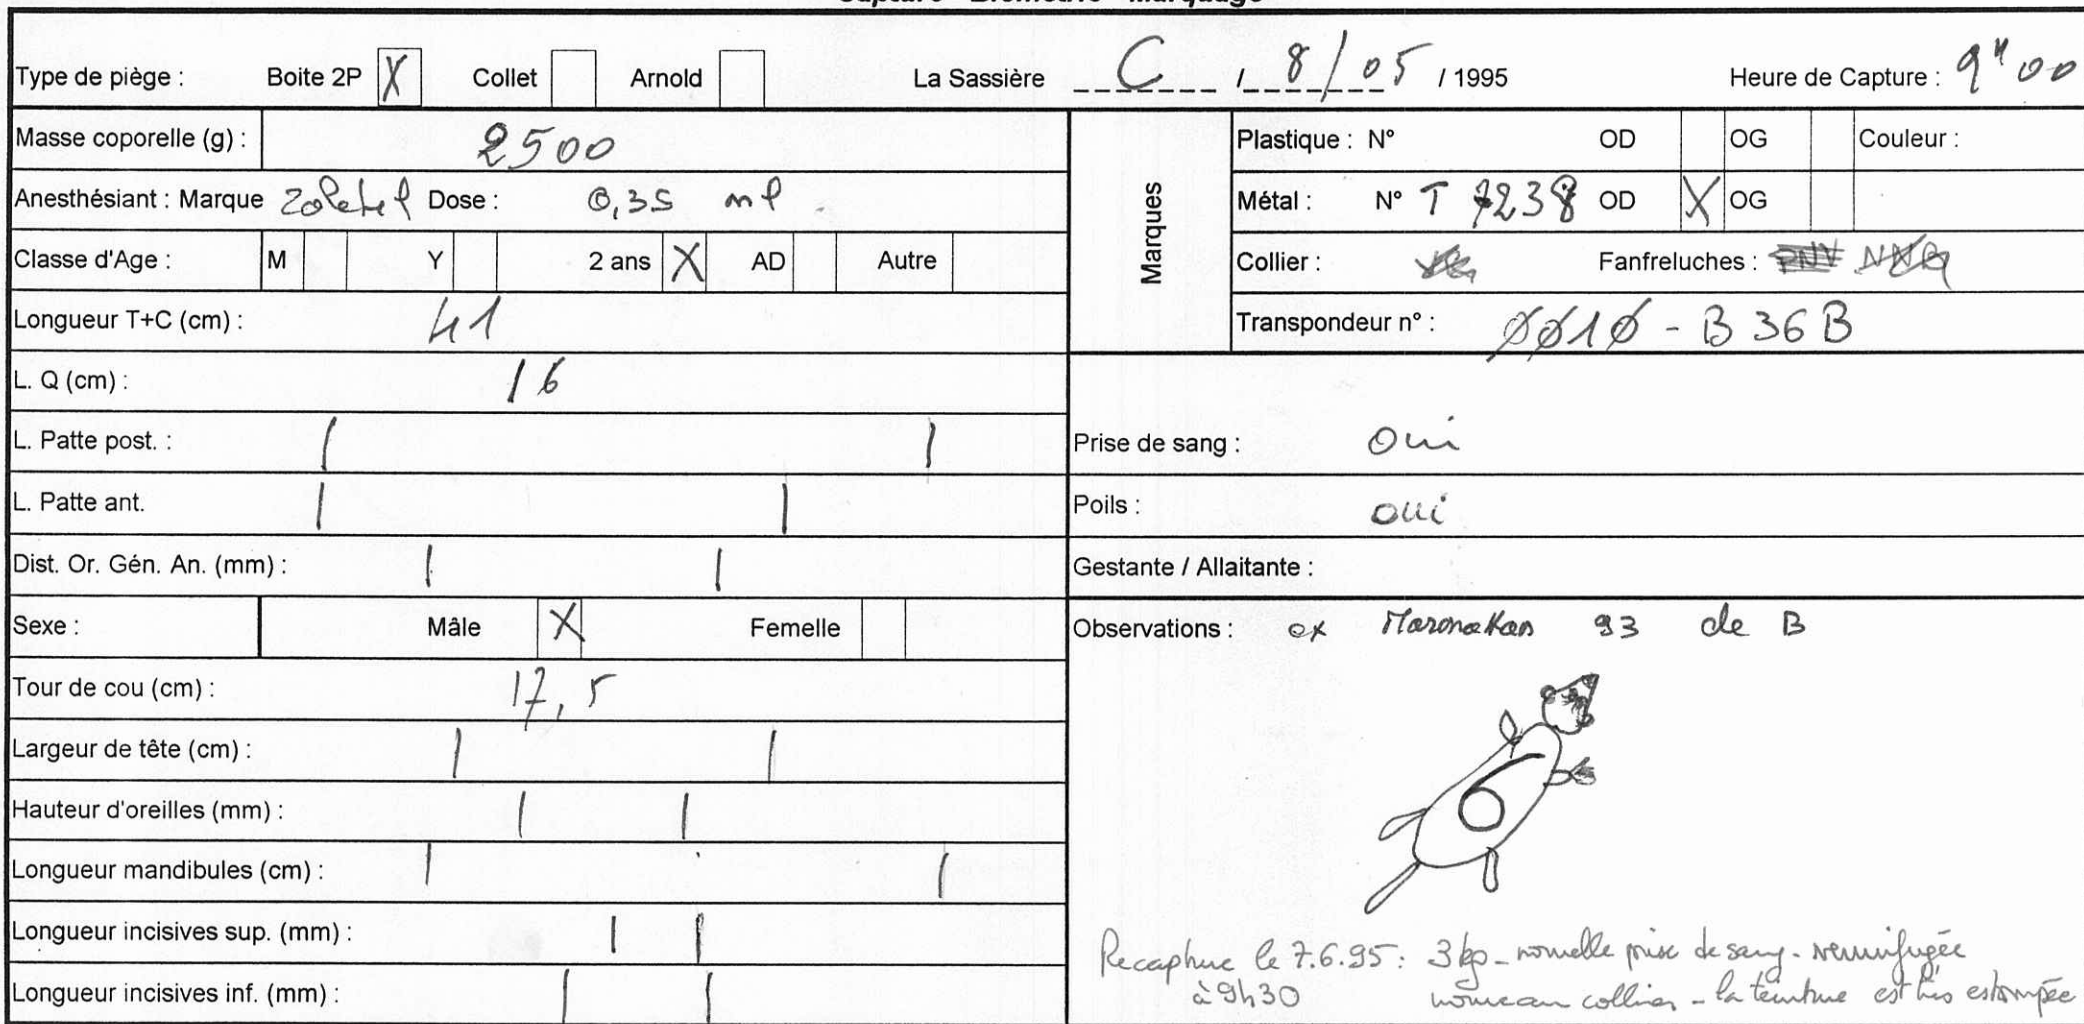 Capture - Biométrie - Marquage
Type de piège : Boite 2P X Collet Arnold La Sassière C / 8/05 / 1995 Heure de Capture : 9H00
Masse coporelle (g) : 2500
Anesthésiant : Marque Zoletil Dose : 0,35 ml
Classe d'Age : M Y 2 ans X AD Autre
Longueur T+C (cm) : 41
L. Q (cm) : 16
L. Patte post. :
L. Patte ant.
Dist. Or. Gén. An. (mm) :
Sexe : Mâle X Femelle
Tour de cou (cm) : 17,5
Largeur de tête (cm) :
Hauteur d'oreilles (mm) :
Longueur mandibules (cm) :
Longueur incisives sup. (mm) :
Longueur incisives inf. (mm) :
Marques
Plastique : N° OD OG Couleur :
Métal : N° T 7238 OD X OG
Collier : Fanfreluches :
Transpondeur n° : 0010 - B36B
Prise de sang : oui
Poils : oui
Gestante / Allaitante :
Observations : ex 93 de B
6
Recapture le 7.6.95 : 3 kg - nouvelle prise de sang - vermifugée
à 9h30 nouveau collier - la teinture est très estompée